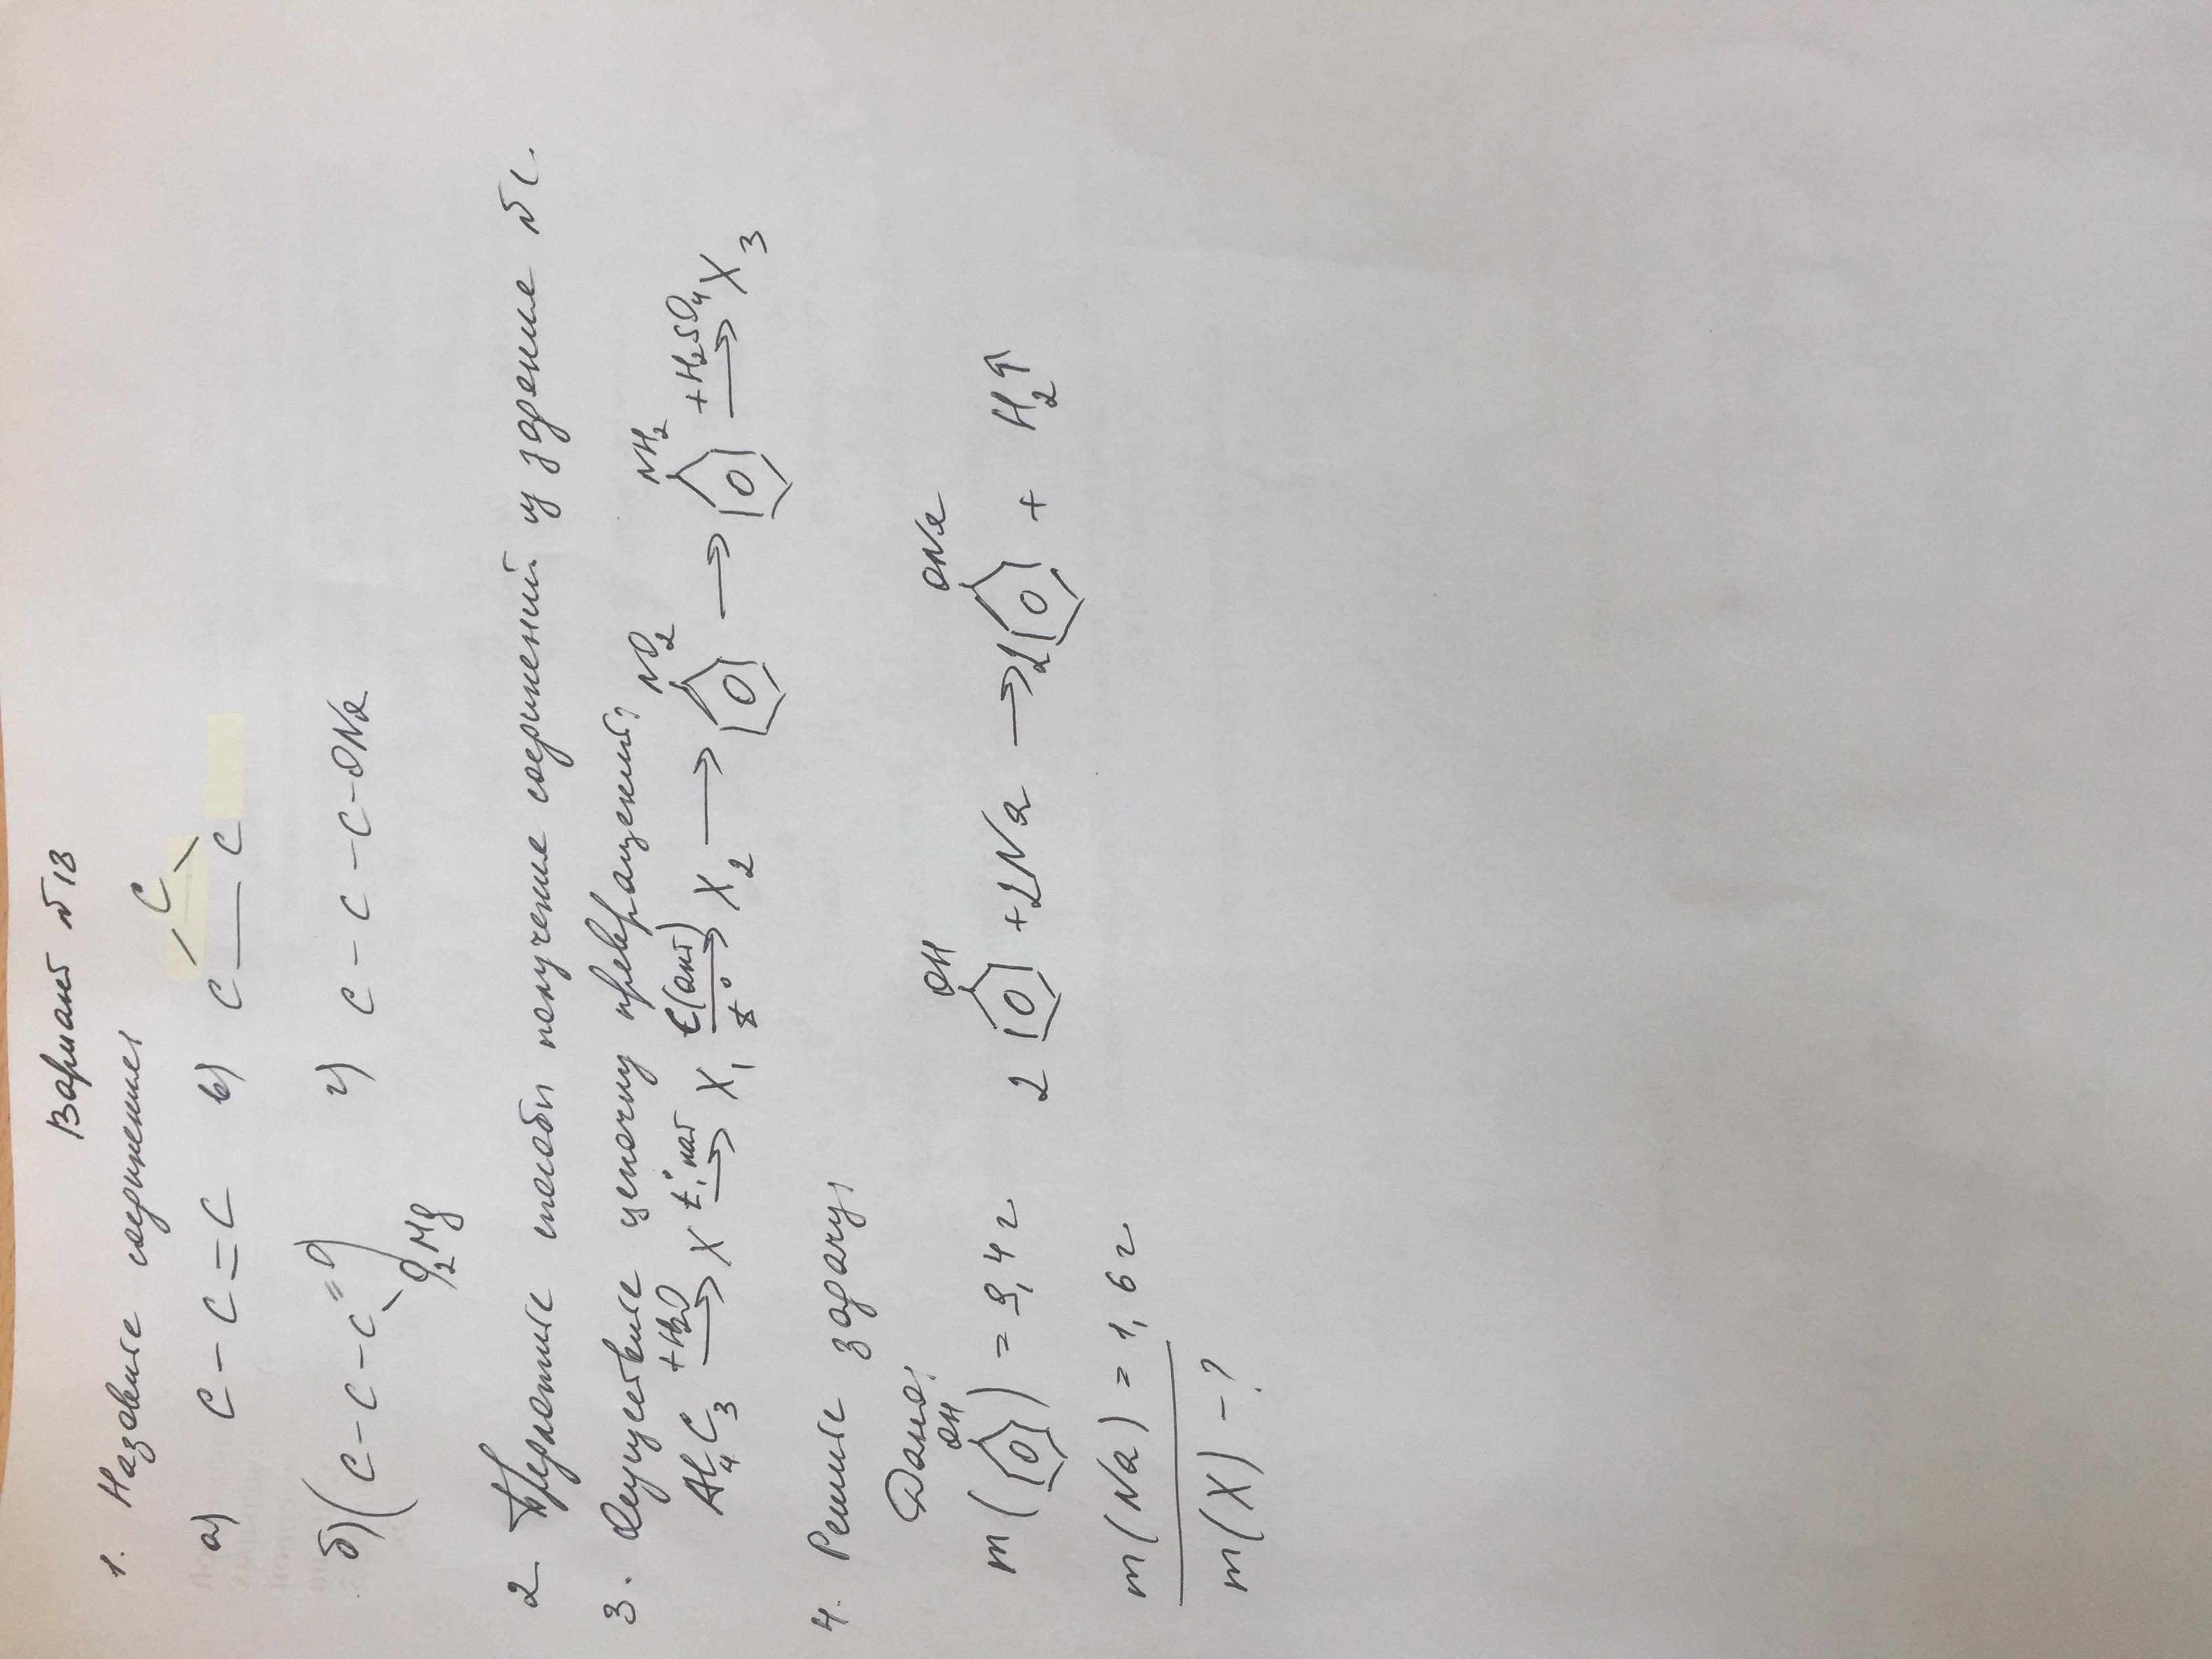 Вариант №18
1. Назовите соединения
а) C – C = C в) C – C
C
б) (C – C – C =O г) C – C – C – ONa
O)2Mg
2 Предложите способы получение соединений из задание №1.
3. Осуществите цепочку превращений:
Al4C3 +H2O→ X t°, кат→ X1 C(акт) t°→ X2 → NO2 → NH2 +H2SO4→ X3
4. Решите задачу:
Дано:
m( OH ) = 9,4 г 2 OH + 2Na → 2 ONa + H2↑
m(Na) = 1,6 г
m(X) – ?